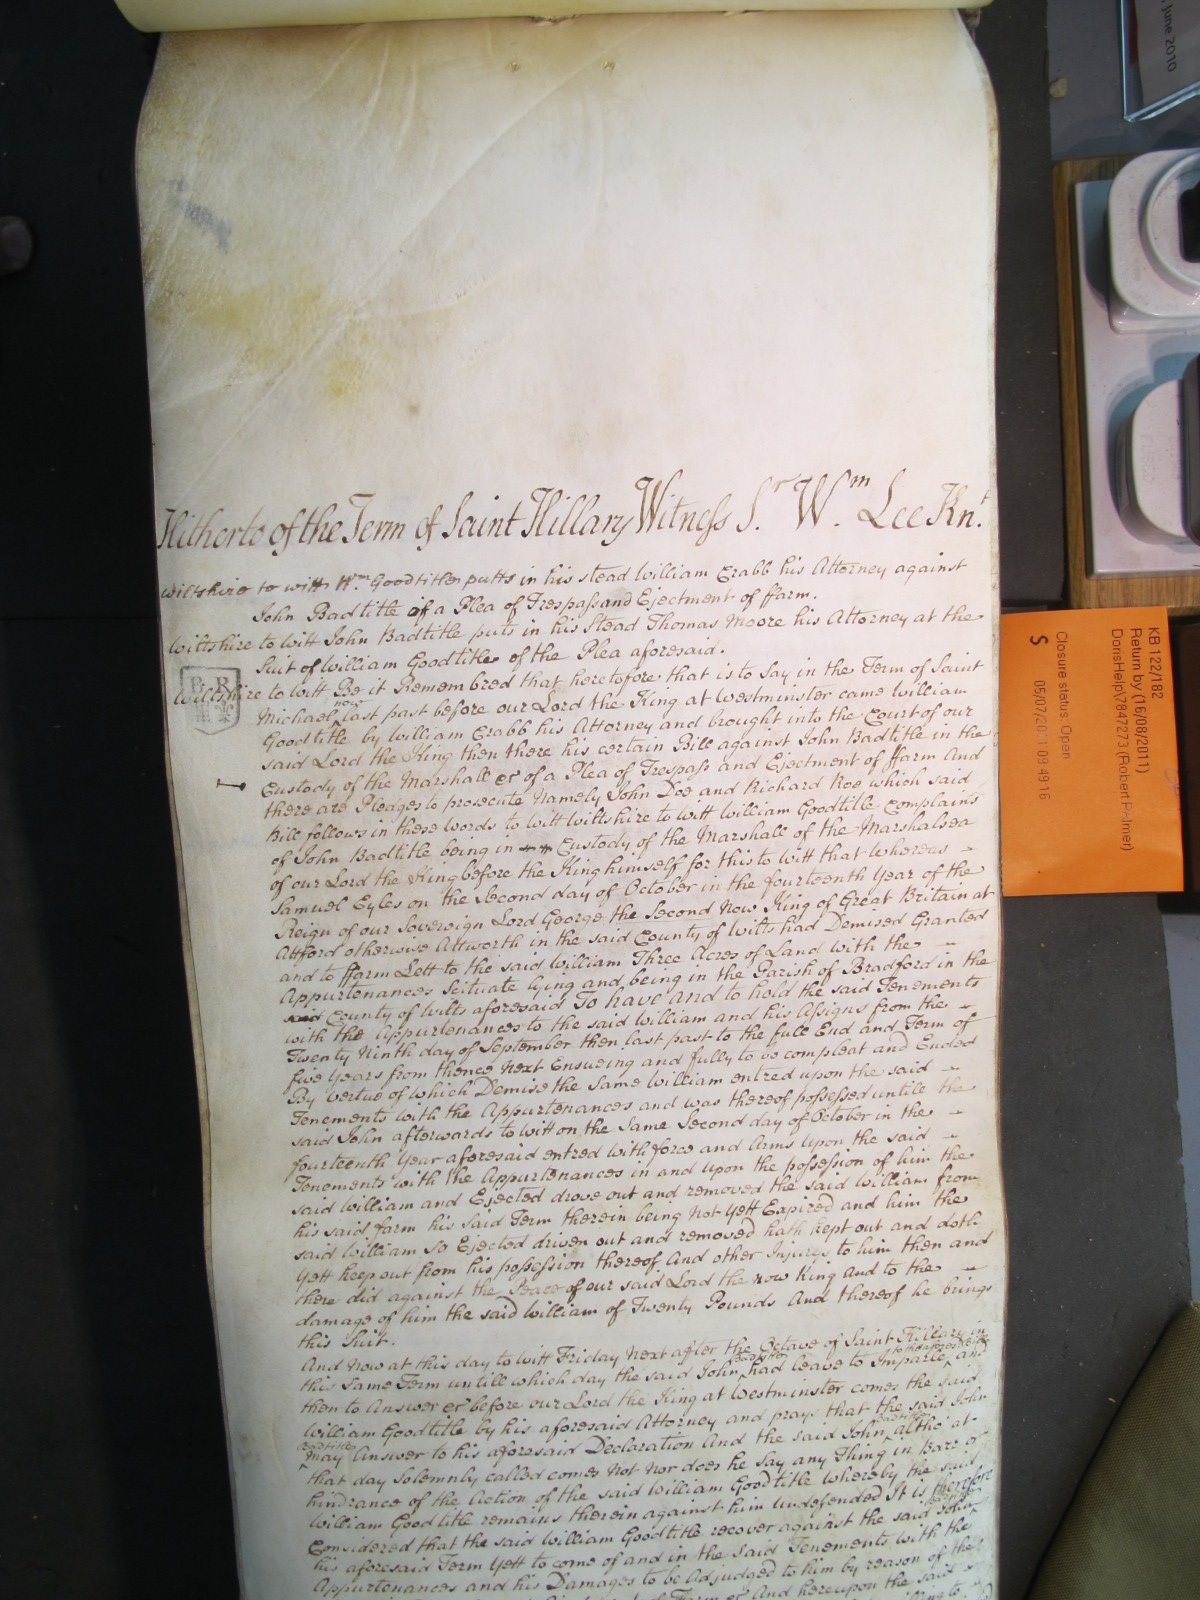 Hitherto of the Term of Saint Hillary Witness Sr. Wm. Lee Knt.
Wiltshire to witt Wm. Goodtitle putts in his stead William Crabb his Attorney against
John Badtitle of a Plea of Trespass and Ejectment of ffarm.
Wiltshire to witt John Badtitle puts in his Stead Thomas Moore his Attorney at the
Suit of William Goodtitle of the Plea aforesaid.
Wiltshire to witt Be it Remembred that heretofore that is to say in the Term of Saint
Michael now last past before our Lord the King at Westminster came William
Goodtitle by William Crabb his Attorney and brought into the Court of our
said Lord the King then there his certain Bill against John Badtitle in the
Custody of the Marshall &c of a Plea of Trespass and Ejectment of ffarm And
there are Pledges to prosecute Namely John Doe and Richard Roe which said
Bill follows in these words to witt Wiltshire to witt William Goodtitle Complains
of John Badtitle being in Custody of the Marshall of the Marshalsea
of our Lord the King before the King himself for this to witt that Whereas
Samuel Eyles on the Second day of October in the fourteenth Year of the
Reign of our Sovereign Lord George the Second Now King of Great Britain at
Attford otherwise Attworth in the said County of Wilts had Demised Granted
and to ffarm Lett to the said William Three Acres of Land with the
Appurtenances Scituate lying and being in the Parish of Bradford in the
said County of Wilts aforesaid To have and to hold the said Tenements
with the Appurtenances to the said William and his Assigns from the
Twenty Ninth day of September then last past to the full End and Term of
five Years from thence Next Ensueing and fully to be compleat and Ended
By vertue of which Demise the Same William entred upon the said
Tenements with the Appurtenances and was thereof possessed untill the
said John afterwards to witt on the Same Second day of October in the
fourteenth Year aforesaid entred with force and Arms upon the said
Tenements with the Appurtenances in and upon the possession of him the
said William and Ejected drove out and removed the said William from
his said farm his said Term therein being Not Yett Expired and him the
said William so Ejected driven out and removed hath kept out and doth
Yett keep out from his possession thereof And other Injurys to him then and
there did against the Peace of our said Lord the now King And to the
damage of him the said William of Twenty Pounds And thereof he brings
this Suit.
And Now at this day to witt Friday Next after the Octave of Saint Hillary in
this Same Term untill which day the said John Badtitle had leave to Imparle and
then to Answer &c before our Lord the King at Westminster comes the said
William Goodtitle by his aforesaid Attorney and prays that the said John
Badtitle may Answer to his aforesaid Declaration And the said John Badtitle altho' at
that day Solemnly called comes Not nor does he say any Thing in Barr or
hindrance of the Action of the said William Goodtitle whereby the said
William Goodtitle remains therein against him undefended It is therefore
Considered that the said William Goodtitle recover against the said John
his aforesaid Term Yett to come of and in the Said Tenements with the
Appurtenances and his Damages to be Adjudged to him by reason of the
And hereupon the said
P R
June 2010
KB 122/182
Return by (16/08/2011)
DorisHelp\7847273 (Robert Palmer)
Closure status: Open
$ 05/07/2011 09:49:16